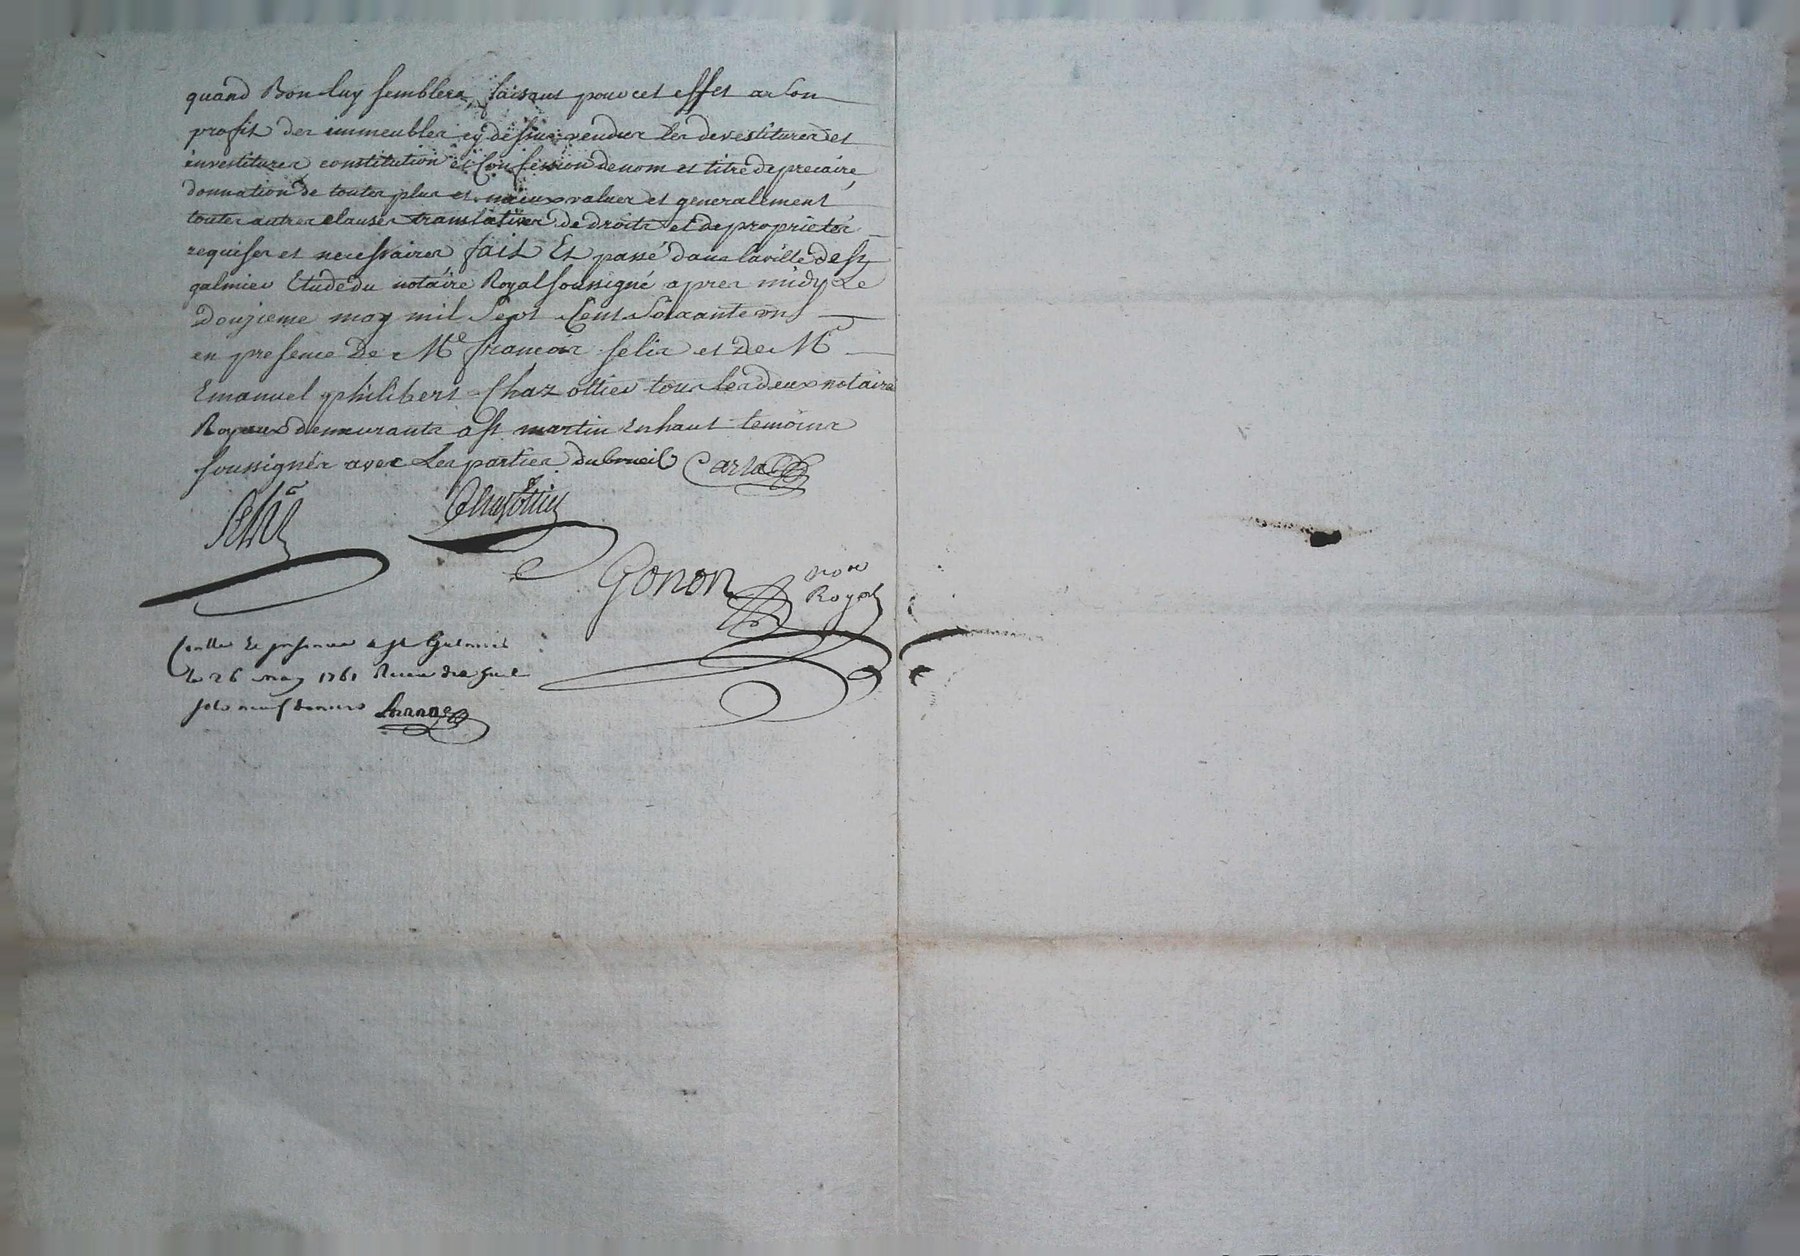 quand Bon luy semblera, faisant pour cet effet a son
profit des immeubles cy dessus vendus les devestitures et
investitures constitution et Confession de nom et titre de precaire,
donnation de toutes plus et mieux values et generalement
toutes autres clauses translatives de droits et de proprietés
requises et necessaires fait Et passé dans la ville de st
galmier Etude du notaire Royal soussigné apres midy Le
Douzieme may mil Sept Cent Soixante un
en presence De Me francois felix et De Me
Emanuel philibert Chazottier tous les deux notaire
Royaux demeurants a st martin en haut temoins
soussignés avec Les parties dubrueil Carla
felix
Chazottier
Gonon nore
Royal
Conlle Et a st Galmier
le 26 may 1761 Recu
sols neuf deniers